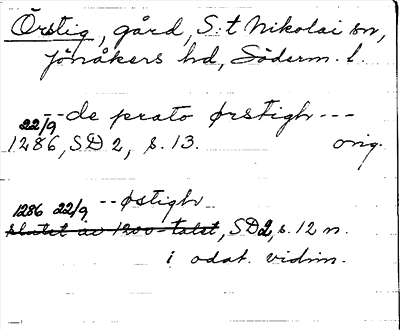 Örstig, gård, S:t Nikolai sn,
Jönåkers hd, Söderm. l.
-- de prato ørstigh ---
22/9
1286, SD 2, s. 13. orig.
1286 22/9 -- østigh
slutet av 1200-talet, SD2, s. 12 n.
i odat. vidim.